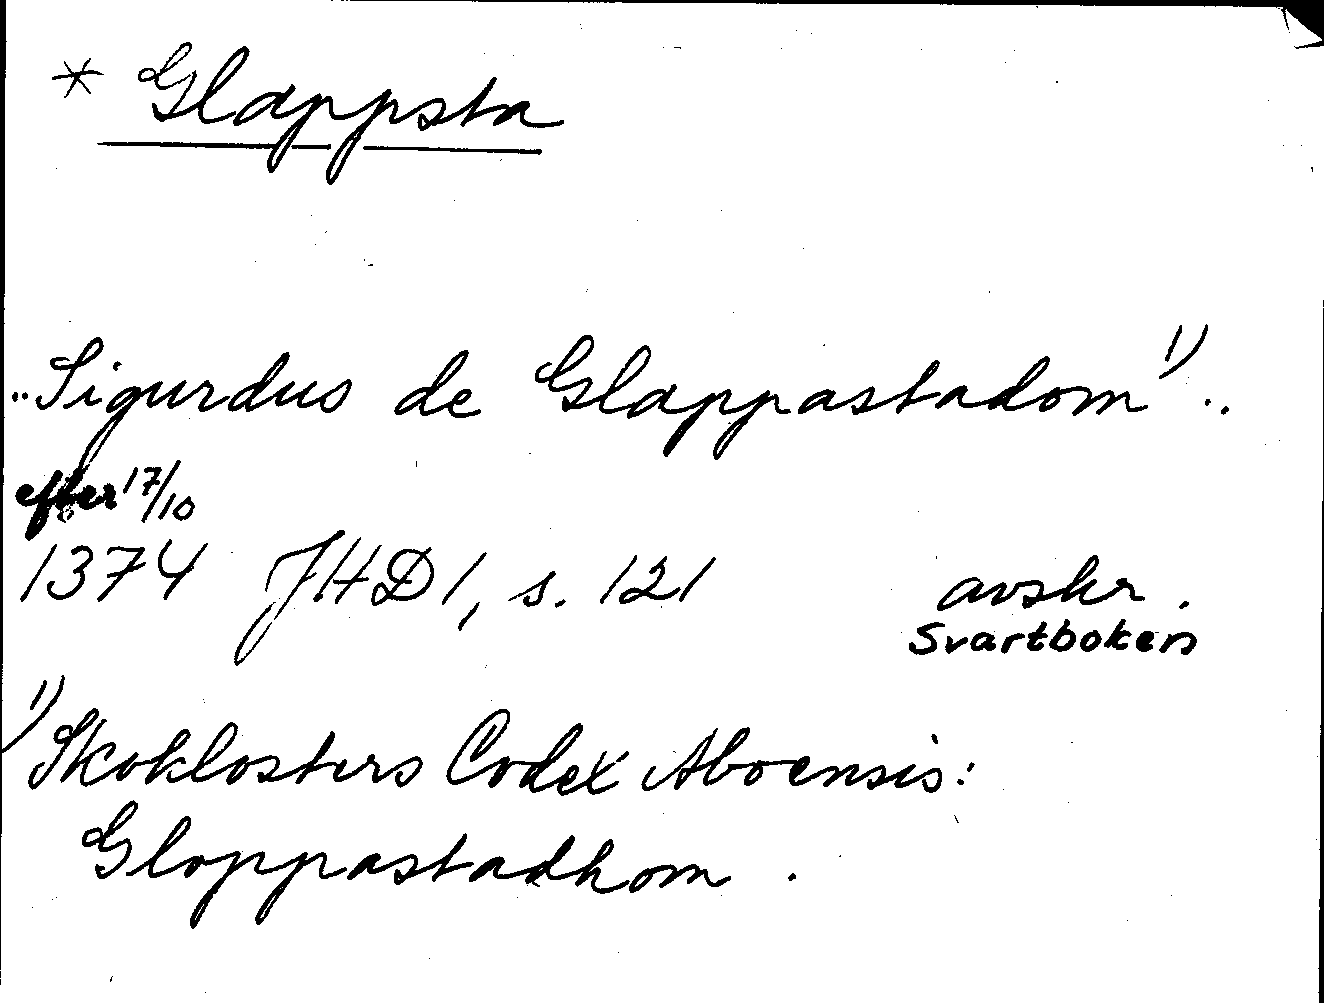 * Glappsta
..Sigurdus de Glappastadom 1) ..
efter 17/10
1374 JHD 1, s. 121 avskr.
Svartboken
1) Skoklosters Codex Aboensis:
Gloppastadhom.